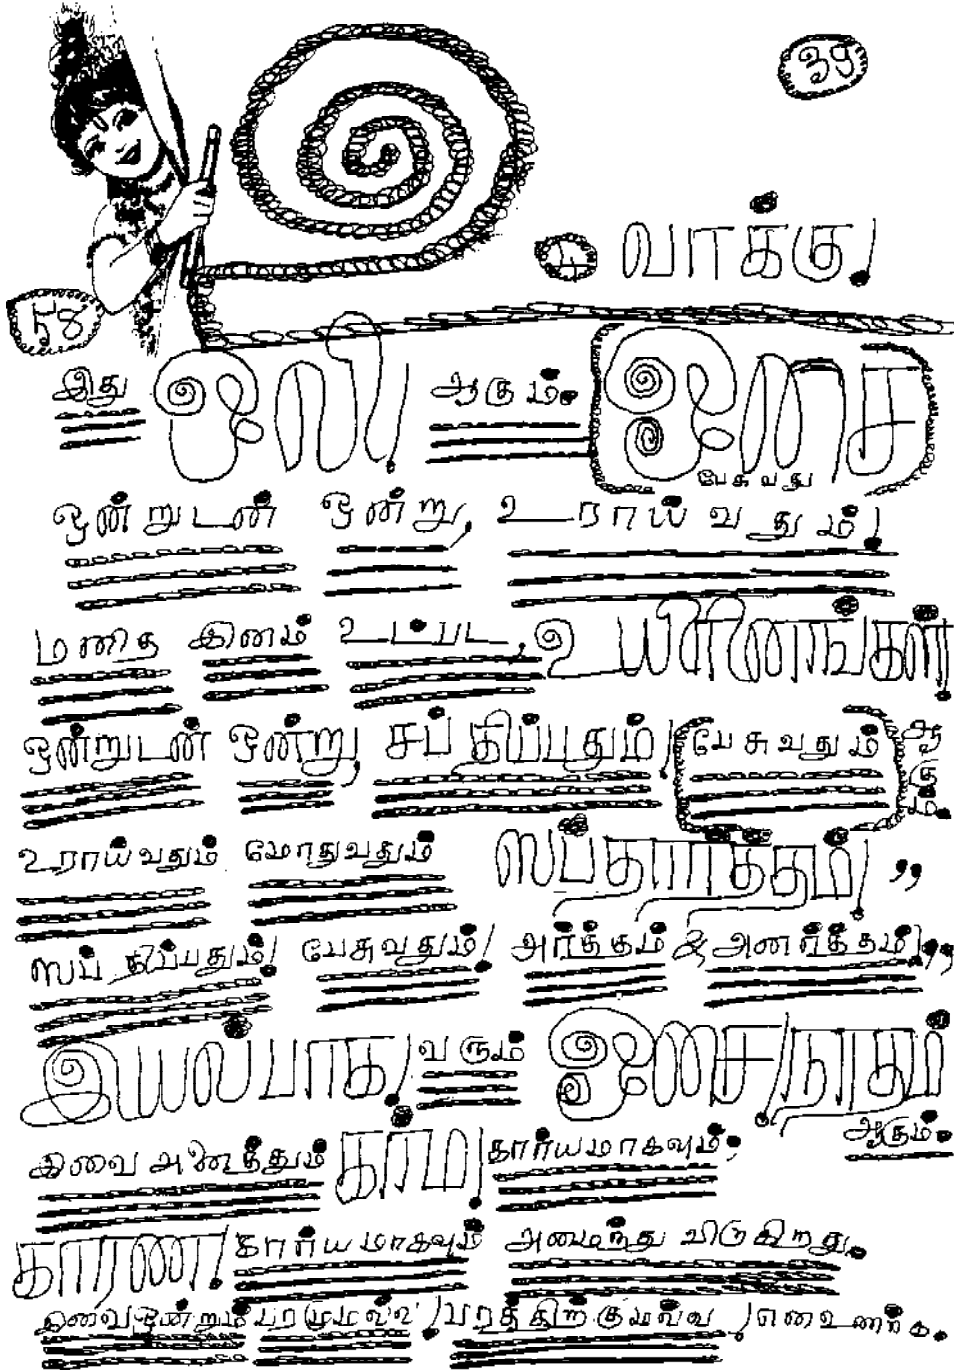 39
வாக்கு!
58
இது ஒலி! ஆகும். ஓசை
பேசுவது
ஒன்றுடன் ஒன்று, உராய்வதும்!
மனித இனம் உட்பட, உயிரினங்கள்!
ஒன்றுடன் ஒன்று, சப்திப்பதும்! பேசுவதும் ஆகும்.
உராய்வதும் மோதுவதும் ஸப்தார்த்தம்! ,,
ஸப்திப்பதும்! பேசுவதும்! அர்த்தம் & அனர்த்தம்! ,,
இயல்பாக! வரும் ஓசை! நாதம்
ஆகும்.
இவை அனைத்தும் காம! கார்யமாகவும்;
காரண! கார்யமாகவும் அமைந்து விடுகிறது.
இவை ஒன்றும் பரமுமல்ல! பரத்திற்குமல்ல! எனஉணர்க.